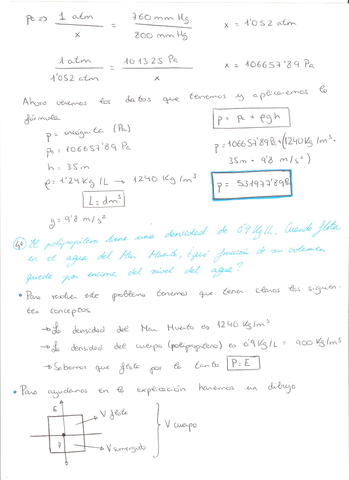 po => 1 atm / x = 760 mm Hg / 800 mm Hg x = 1'052 atm
1 atm / 1'052 atm = 101325 Pa / x x = 106657'89 Pa
Ahora veremos los datos que tenemos y aplicaremos la
fórmula
p = po + ρgh
p = incógnita (Pa)
po = 106657'89 Pa
h = 35m
ρ = 1'24 Kg/L → 1240 Kg/m³
L = dm³
g = 9'8 m/s²
p = 106657'89 Pa + (1240 Kg/m³ ·
35m · 9'8 m/s²)
p = 531977'89 Pa
4. El polipropileno tiene una densidad de 0'9 Kg/L. Cuando flota
en el agua del Mar Muerto, ¿qué fracción de su volumen
queda por encima del nivel del agua?
• Para resolver este problema tenemos que tener claros los siguien-
tes conceptos
→ La densidad del Mar Muerto es 1240 Kg/m³
→ La densidad del cuerpo (polipropileno) es 0'9 Kg/L = 900 Kg/m³
→ Sabemos que flota por lo tanto P = E
• Para ayudarnos en la explicación haremos un dibujo
E
V flota
P
V sumergido
V cuerpo